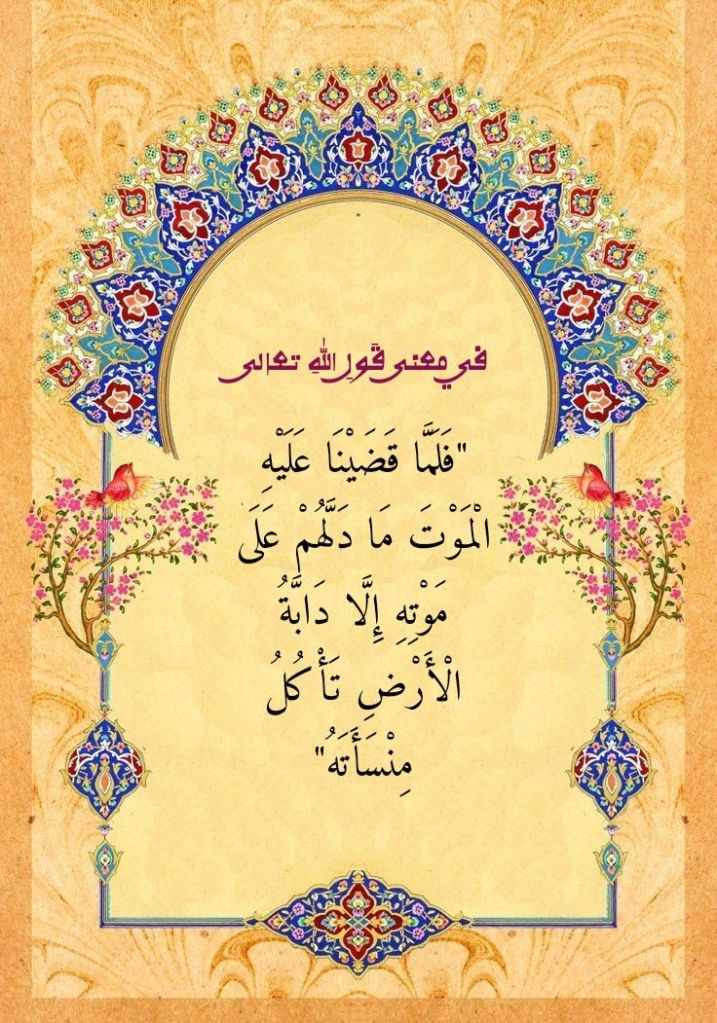 في معنى قول الله تعالى
"فَلَمَّا قَضَيْنَا عَلَيْهِ
الْمَوْتَ مَا دَلَّهُمْ عَلَى
مَوْتِهِ إِلَّا دَابَّةُ
الْأَرْضِ تَأْكُلُ
مِنْسَأَتَهُ"